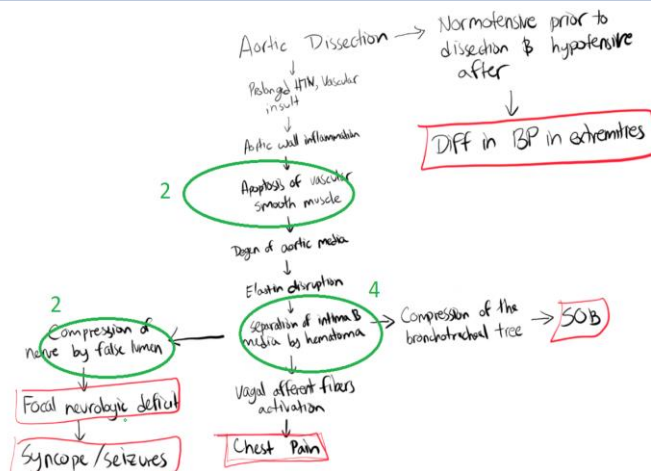 Aortic Dissection → Normotensive prior to
dissection & hypotensive
after
Diff in BP in extremities
Prolonged HTN, Vascular
insult
Aortic wall inflammation
2
Apoptosis of vascular
smooth muscle
Degen of aortic media
Elastin disruption
4
Separation of intima &
media by hematoma
→ Compression of the
bronchotracheal tree → SOB
2
Compression of
nerve by false lumen
Focal neurologic deficit
Syncope/seizures
Vagal afferent fibers
activation
Chest Pain